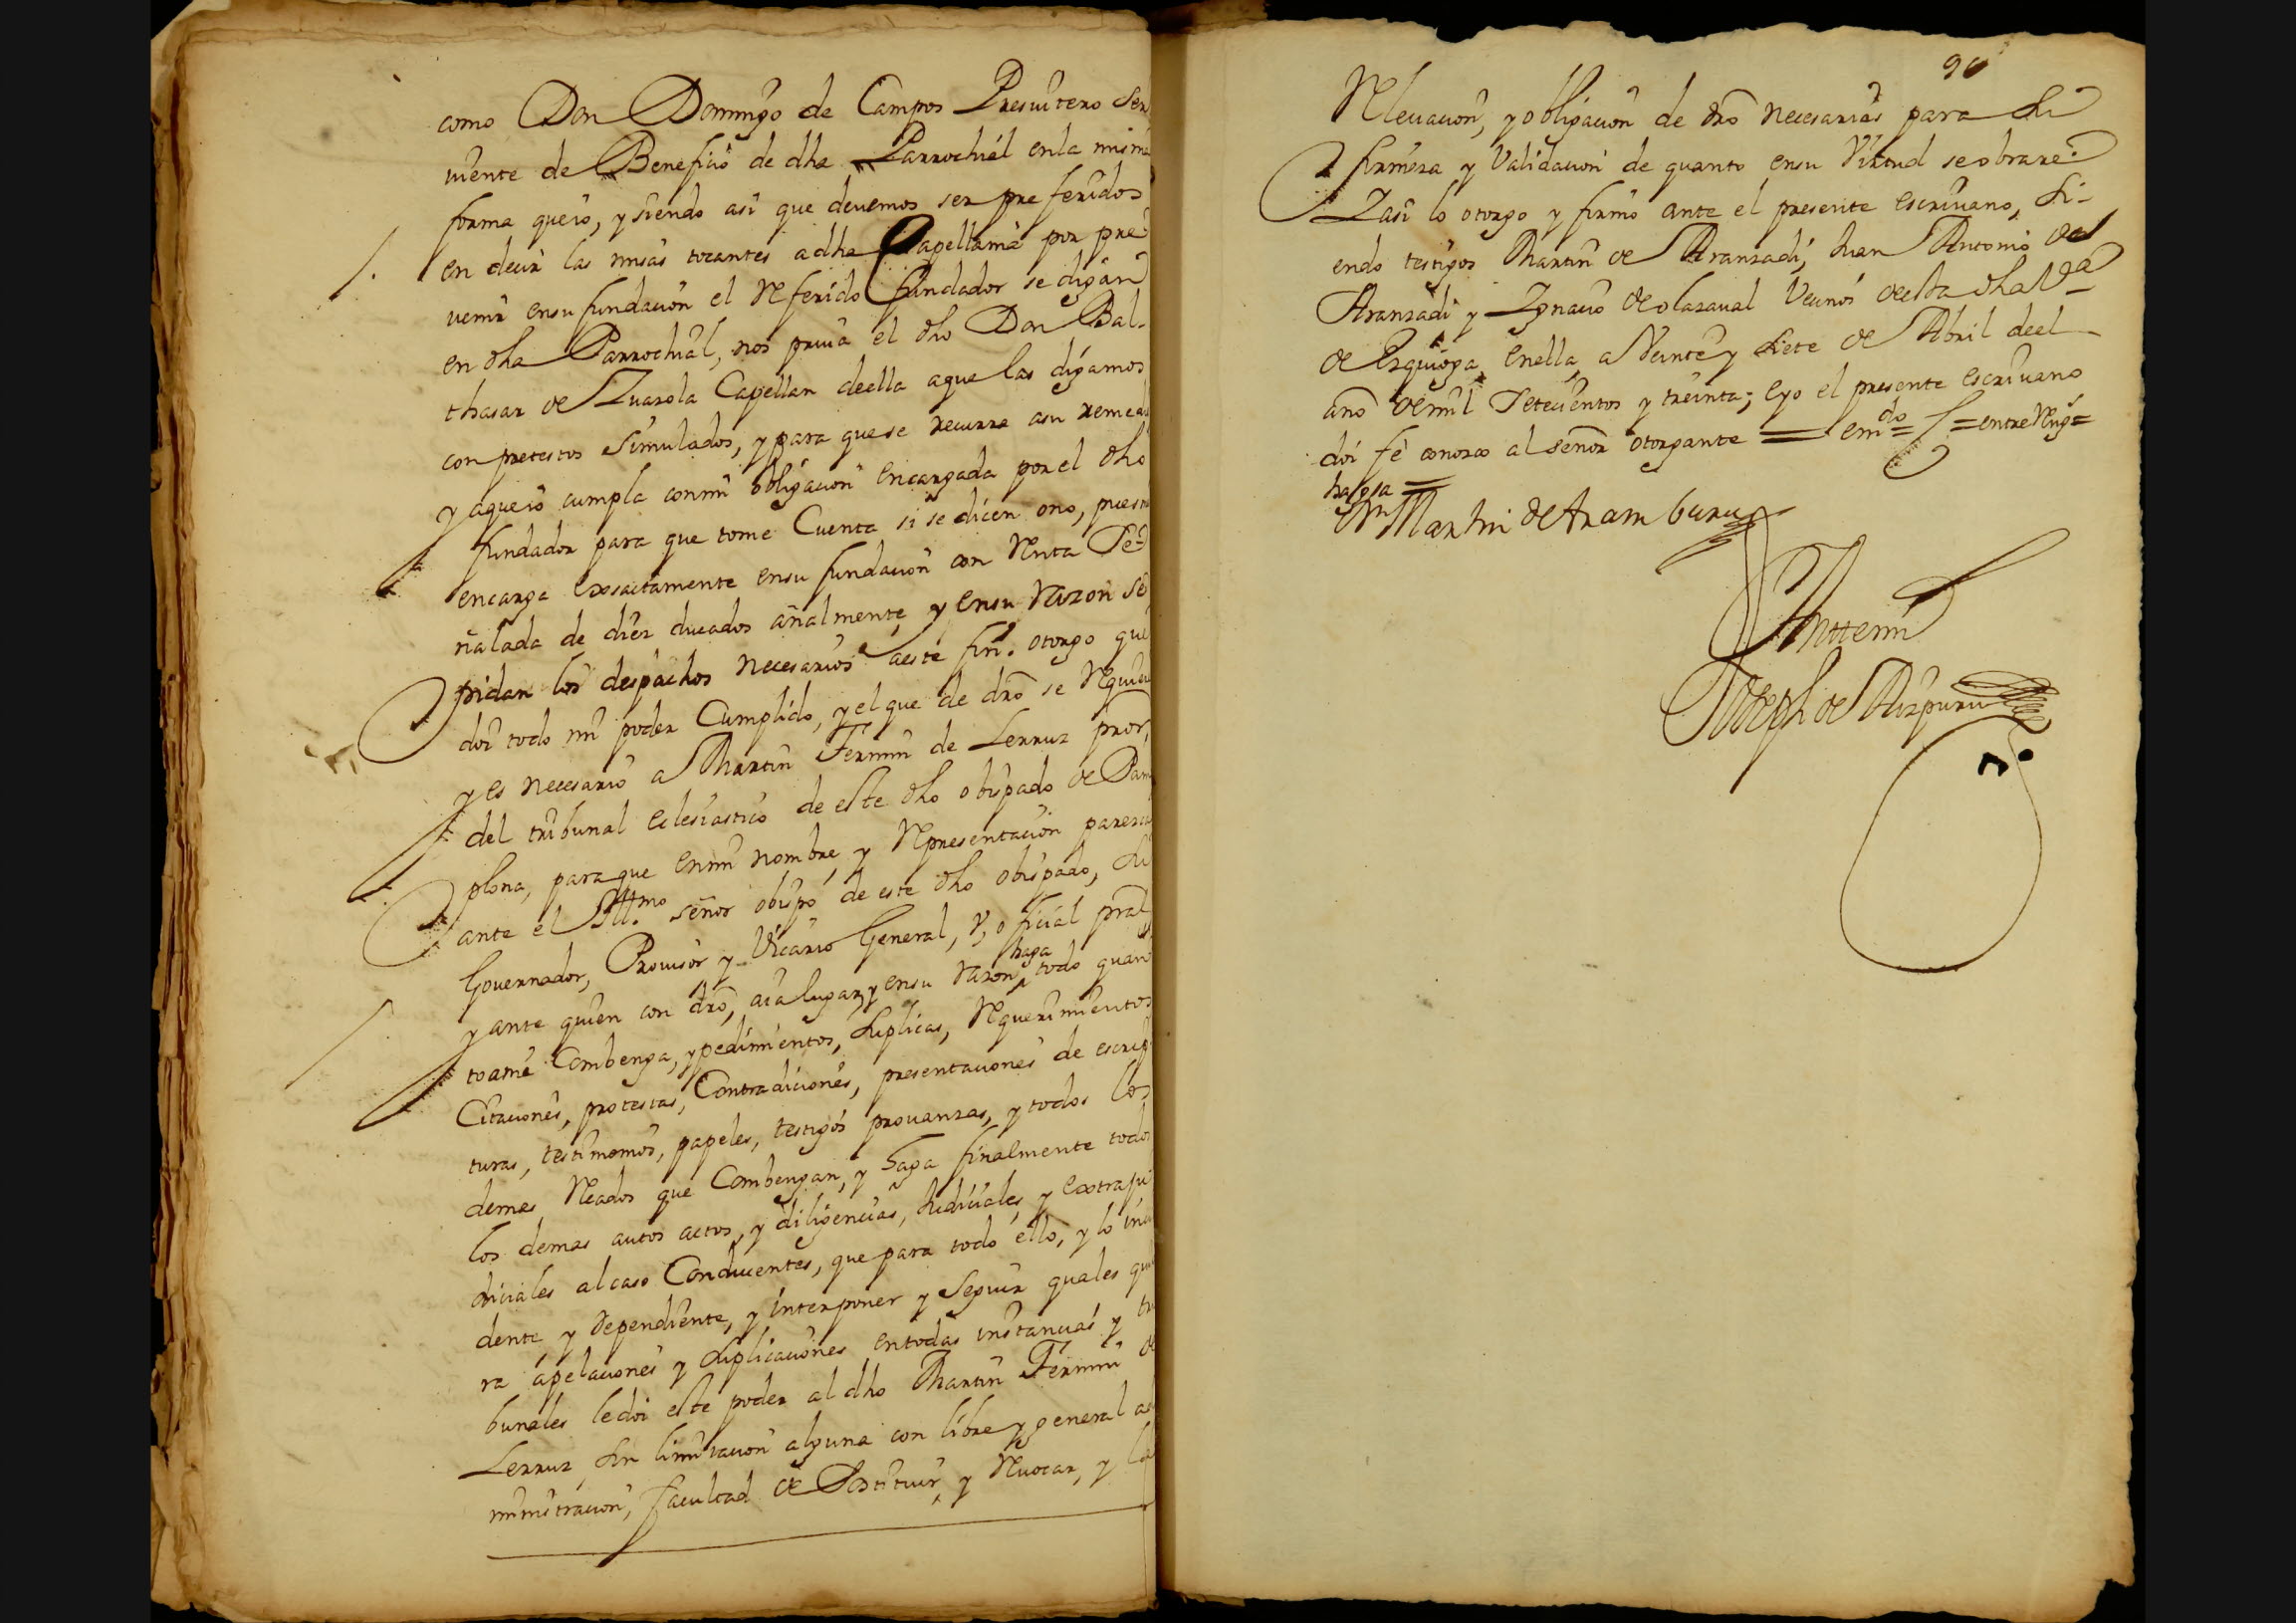 como Don Domingo de Campos Presuitero Ser
uiente de Beneficio de dha Parrochial enla misma
forma queio, y siendo asi que deuemos ser preferidos
en decir las misas tocantes adha Capellania por pre
uenir ensu fundacion el Referido fundador se digan
en dha Parrochial, nos priua el dho Don Bal-
thasar de Zuazola Capellan deella aque las digamos
con pretestos simulados, y para quese recurra asu remedio
y aqueio cumpla conmi obligacion encargada por el dho
fundador para que tome Cuenta si se dicen ono, pues
encarga Exsactamente ensu fundacion con Renta Se-
ñalada de diez ducados añalmente, y ensu Razon se
pidan los despachos necesarios aeste fin. otorgo que
doi todo mi poder Cumplido, y el que de dro se Requiere
y es necesario a Martin Fermin de Lerruz pror,
del tribunal eclesiastico de este dho obispado de Pam
plona, para que enmi nombre, y Representacion parezca
ante el Illmo señor obispo de este dho obispado, Su
Gouernador, Prouisor y Vicario General, V, oficial pral
y ante quien con dro, aia lugar, y ensu razon haga todo quan
toame Combenga, y pedimientos, Suplicas, Requerimientos
Citaciones, protestas, Contradiciones, presentaciones de escrip
turas, testimonios, papeles, testigos prouanzas, y todos los
demas Reados que Combengan, y haga finalmente todos
los demas autos actos, y diligencias, Judiciales, y Extraju
diciales alcaso Conducentes, que para todo ello, y lo inci
dente, y dependiente, y interponer y Seguir quales quie
ra apelaciones y Suplicaciones entodas instancias y tri
bunales ledoi este poder al dho Martin Fermin de
Lerruz, Sin limitacion alguna con libre y general ad
ministracion, facultad de Sostituir, y Reuocar, y la
90
Releuacion, y obligacion de dro necesarias para Su
firmeza y Validacion de quanto ensu Virtud se obrare.
Y asi lo otorgo y firmo ante el presente escriuano, Si-
endo testigos Martin de Aranzadi, Juan Antonio de
Aranzadi y Ignacio de olazaual Vecinos deesta dha Va
de Ezquioga, Enella, a Veinte y Siete de Abril deel
año demil Setecientos y treinta; eyo el presente escriuano
doi fe conozco al señor otorgante = emdo = f = entre Reng =
haga =
Dn Martin de Aramburu
Antemi
Joseph de Aizpuru